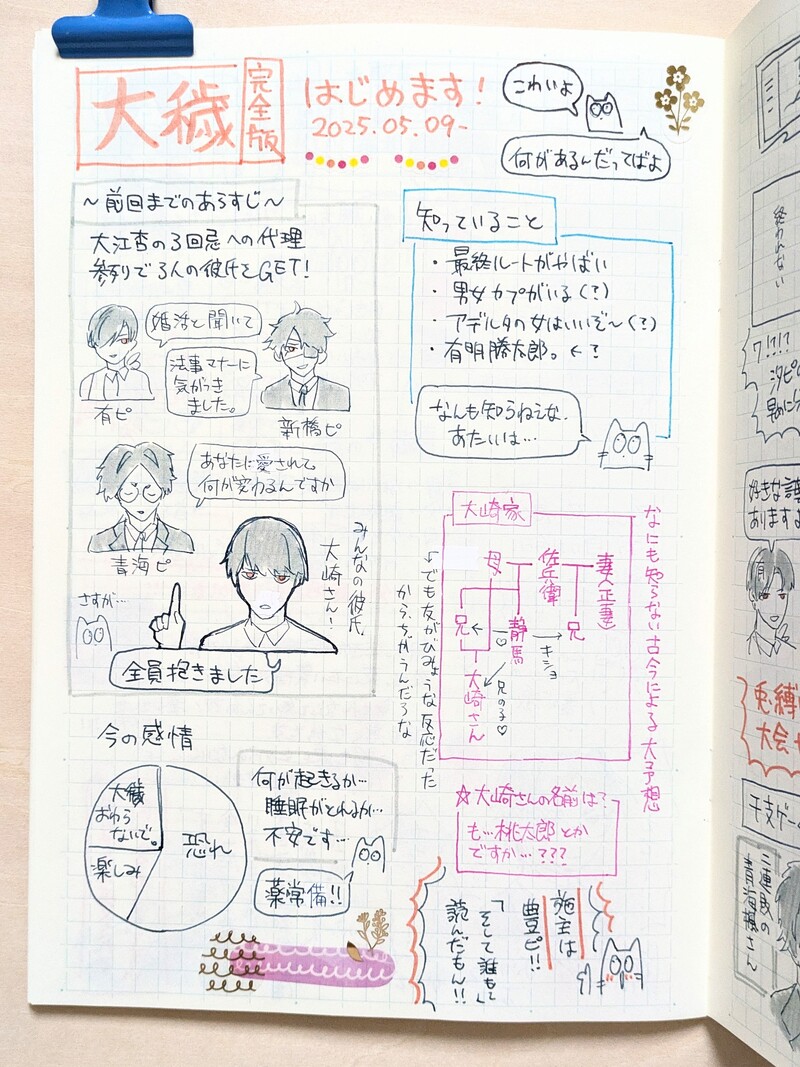 大穢
完全版
はじめます!
2025.05.09-
こわいよ
何があるんだってばよ
~前回までのあらすじ~
大江杏の3回忌への代理
参列で3人の彼氏をGET!
婚活と聞いて
有ピ
法事マナーに
気がつき
ました。
新橋ピ
あなたに愛されて
何が変わるんですか
青海ピ
みんなの彼氏
大崎さん!
さすが…
全員抱きました
知っていること
・最終ルートがやばい
・男女カプがいる(?)
・アデルタの女はいいぞ~(?)
・有明勝太郎。←?
なんも知らねえな、
あたいは…
なにも知らない古今による大予想
大崎家
母
佐兵衛
妻(正妻)
兄
静馬
兄
キショ
兄の子♡
大崎さん
←でも友がびみょうな反応だった
から、ちがうんだろな
☆大崎さんの名前は?
も…桃太郎とか
ですか…???
今の感情
大穢
おわら
ないで。
楽しみ
恐れ
何が起きるか…
睡眠がとれるか…
不安です…
薬常備!!
施主は
豊ピ!!
「そして誰もて」
読んだもん!!
終われない
ワ!?!?
汐ピの
早めに
好きな
あります
有
兎縛
大会
干支ゲーム
三連敗の
青海楓さん